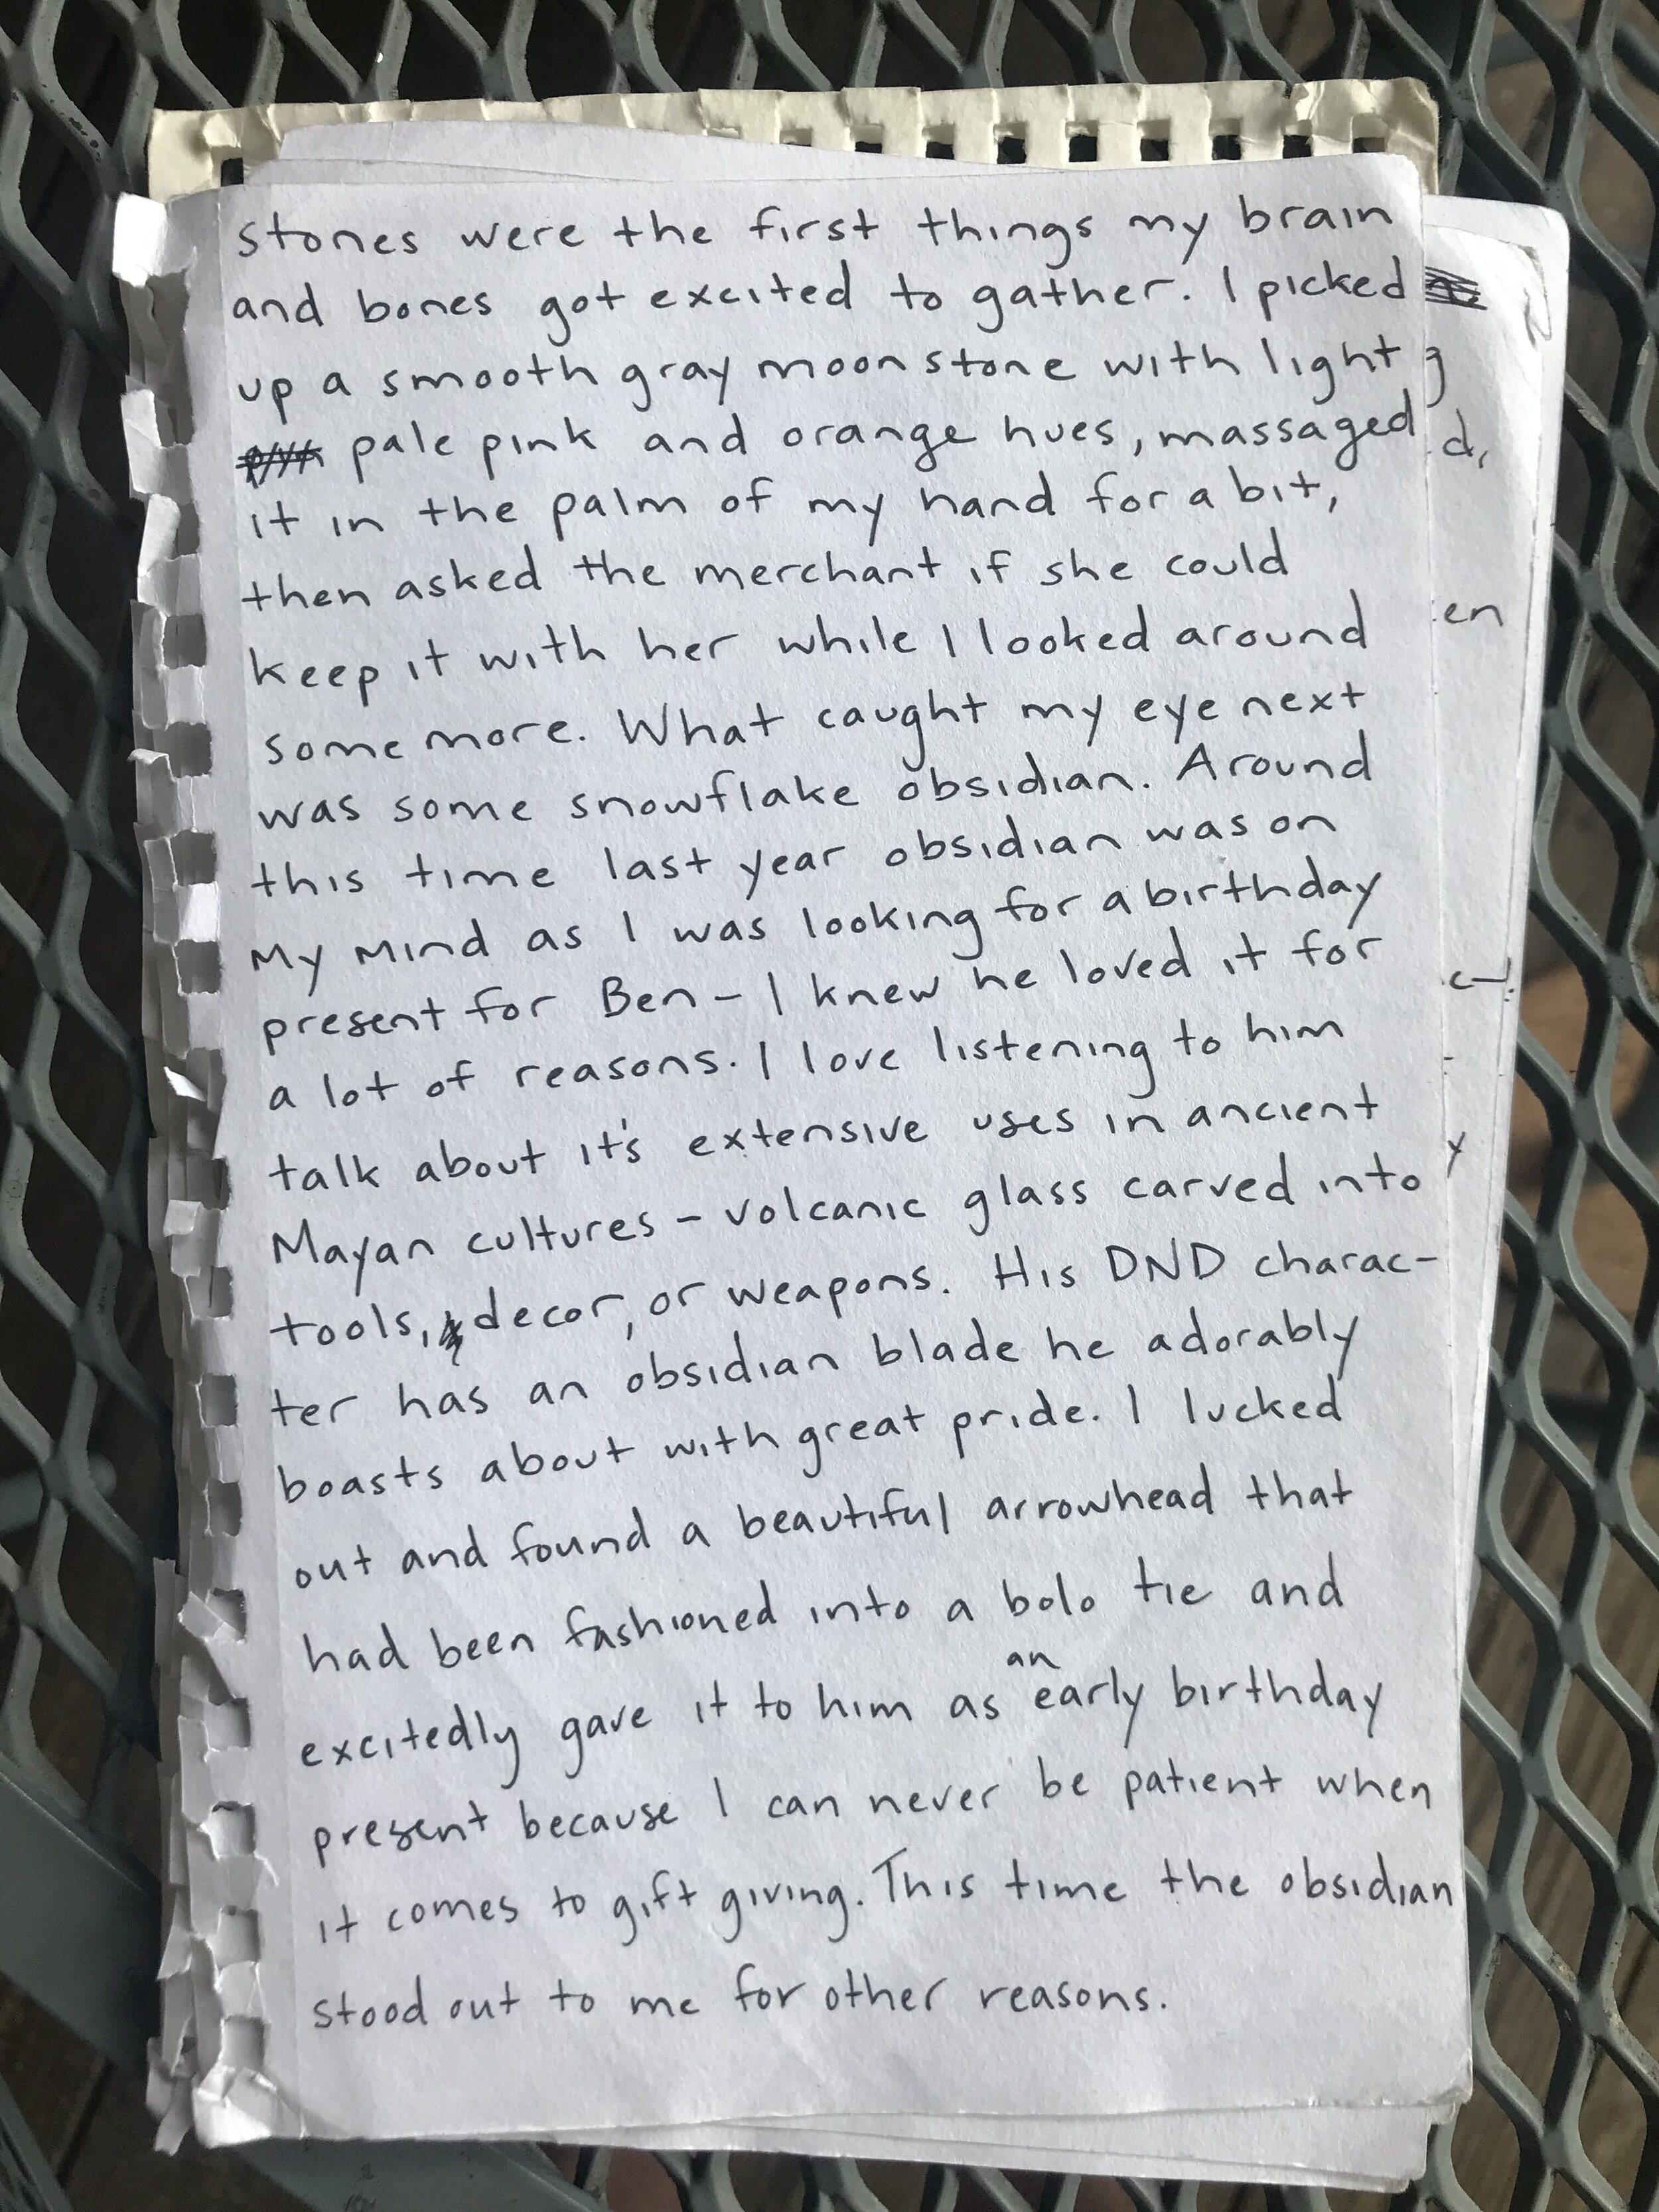 stones were the first things my brain
and bones got excited to gather. I picked
up a smooth gray moonstone with light
pale pink and orange hues, massaged
it in the palm of my hand for a bit,
then asked the merchant if she could
keep it with her while I looked around
some more. What caught my eye next
was some snowflake obsidian. Around
this time last year obsidian was on
my mind as I was looking for a birthday
present for Ben – I knew he loved it for
a lot of reasons. I love listening to him
talk about it's extensive uses in ancient
Mayan cultures – volcanic glass carved into
tools, decor, or weapons. His DND charac-
ter has an obsidian blade he adorably
boasts about with great pride. I lucked
out and found a beautiful arrowhead that
had been fashioned into a bolo tie and
excitedly gave it to him as an early birthday
present because I can never be patient when
it comes to gift giving. This time the obsidian
stood out to me for other reasons.